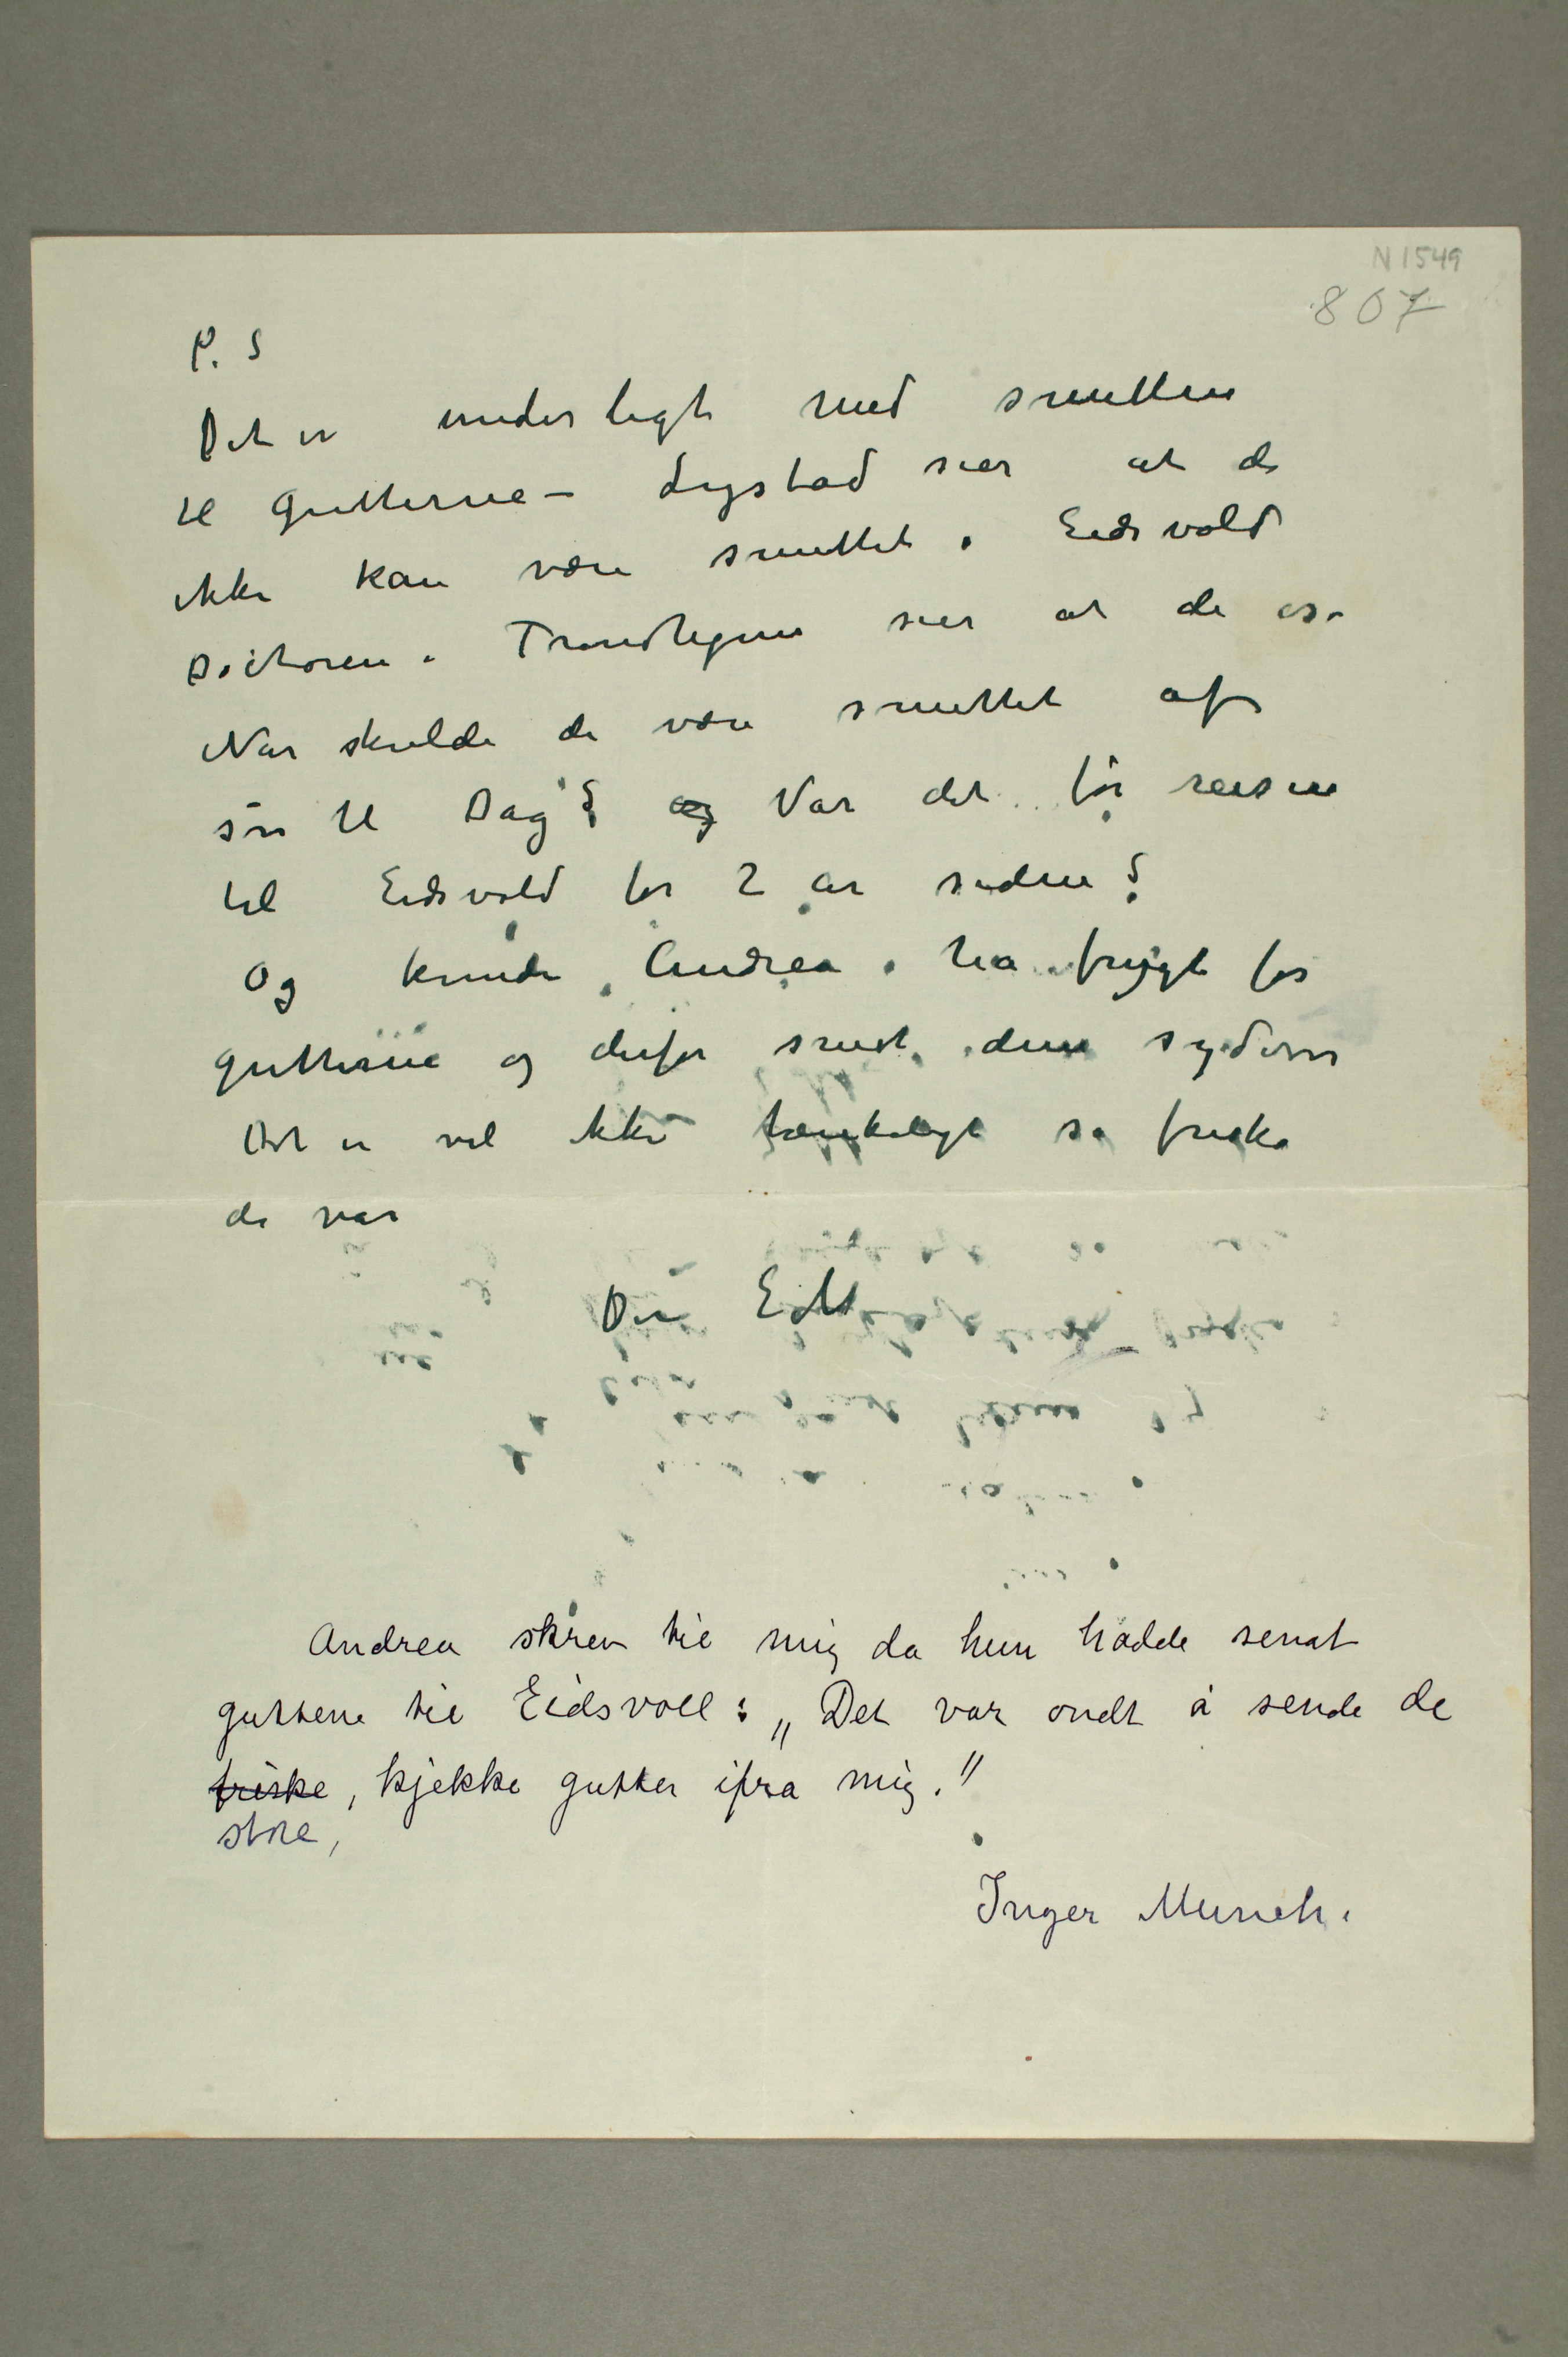 N 1549
807
P. S
Det er underligt med smitten
til gutterne – Lystad sier at de
ikke kan være smittet i Eidsvold
Doctoren i Trondhjem sier at de
Når skulde de være smittet af
til Dag? og Var det før reisen
til Eidsvold for 2 år siden?
Og kunde Andrea ha frygt for
gutterne og derfor sendt dem sydover
Det er vel ikke tænkeligt så friske
de var
Din E M
Andrea skrev til mig da hun hadde sendt
guttene til Eidsvoll: „Det var ondt å sende de
friske, kjekke gutter ifra mig."
store,
Inger Munch.